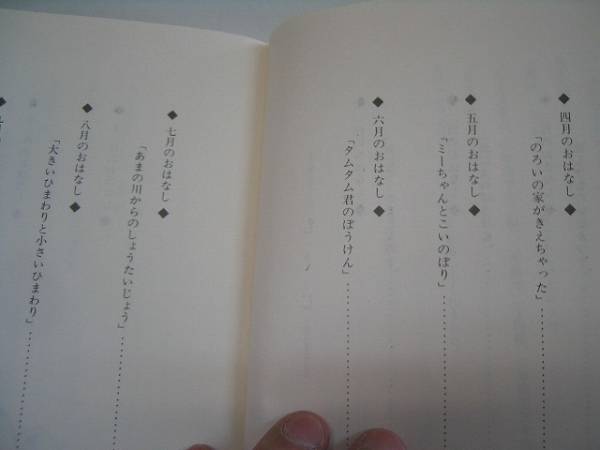 ◆四月のおはなし◆
「のろいの家がきえちゃった」…………
◆五月のおはなし◆
「ミーちゃんとこいのぼり」…………
◆六月のおはなし◆
「タムタム君のぼうけん」…………
◆七月のおはなし◆
「あまの川からのしょうたいじょう」…………
◆八月のおはなし◆
「大きいひまわりと小さいひまわり」…………